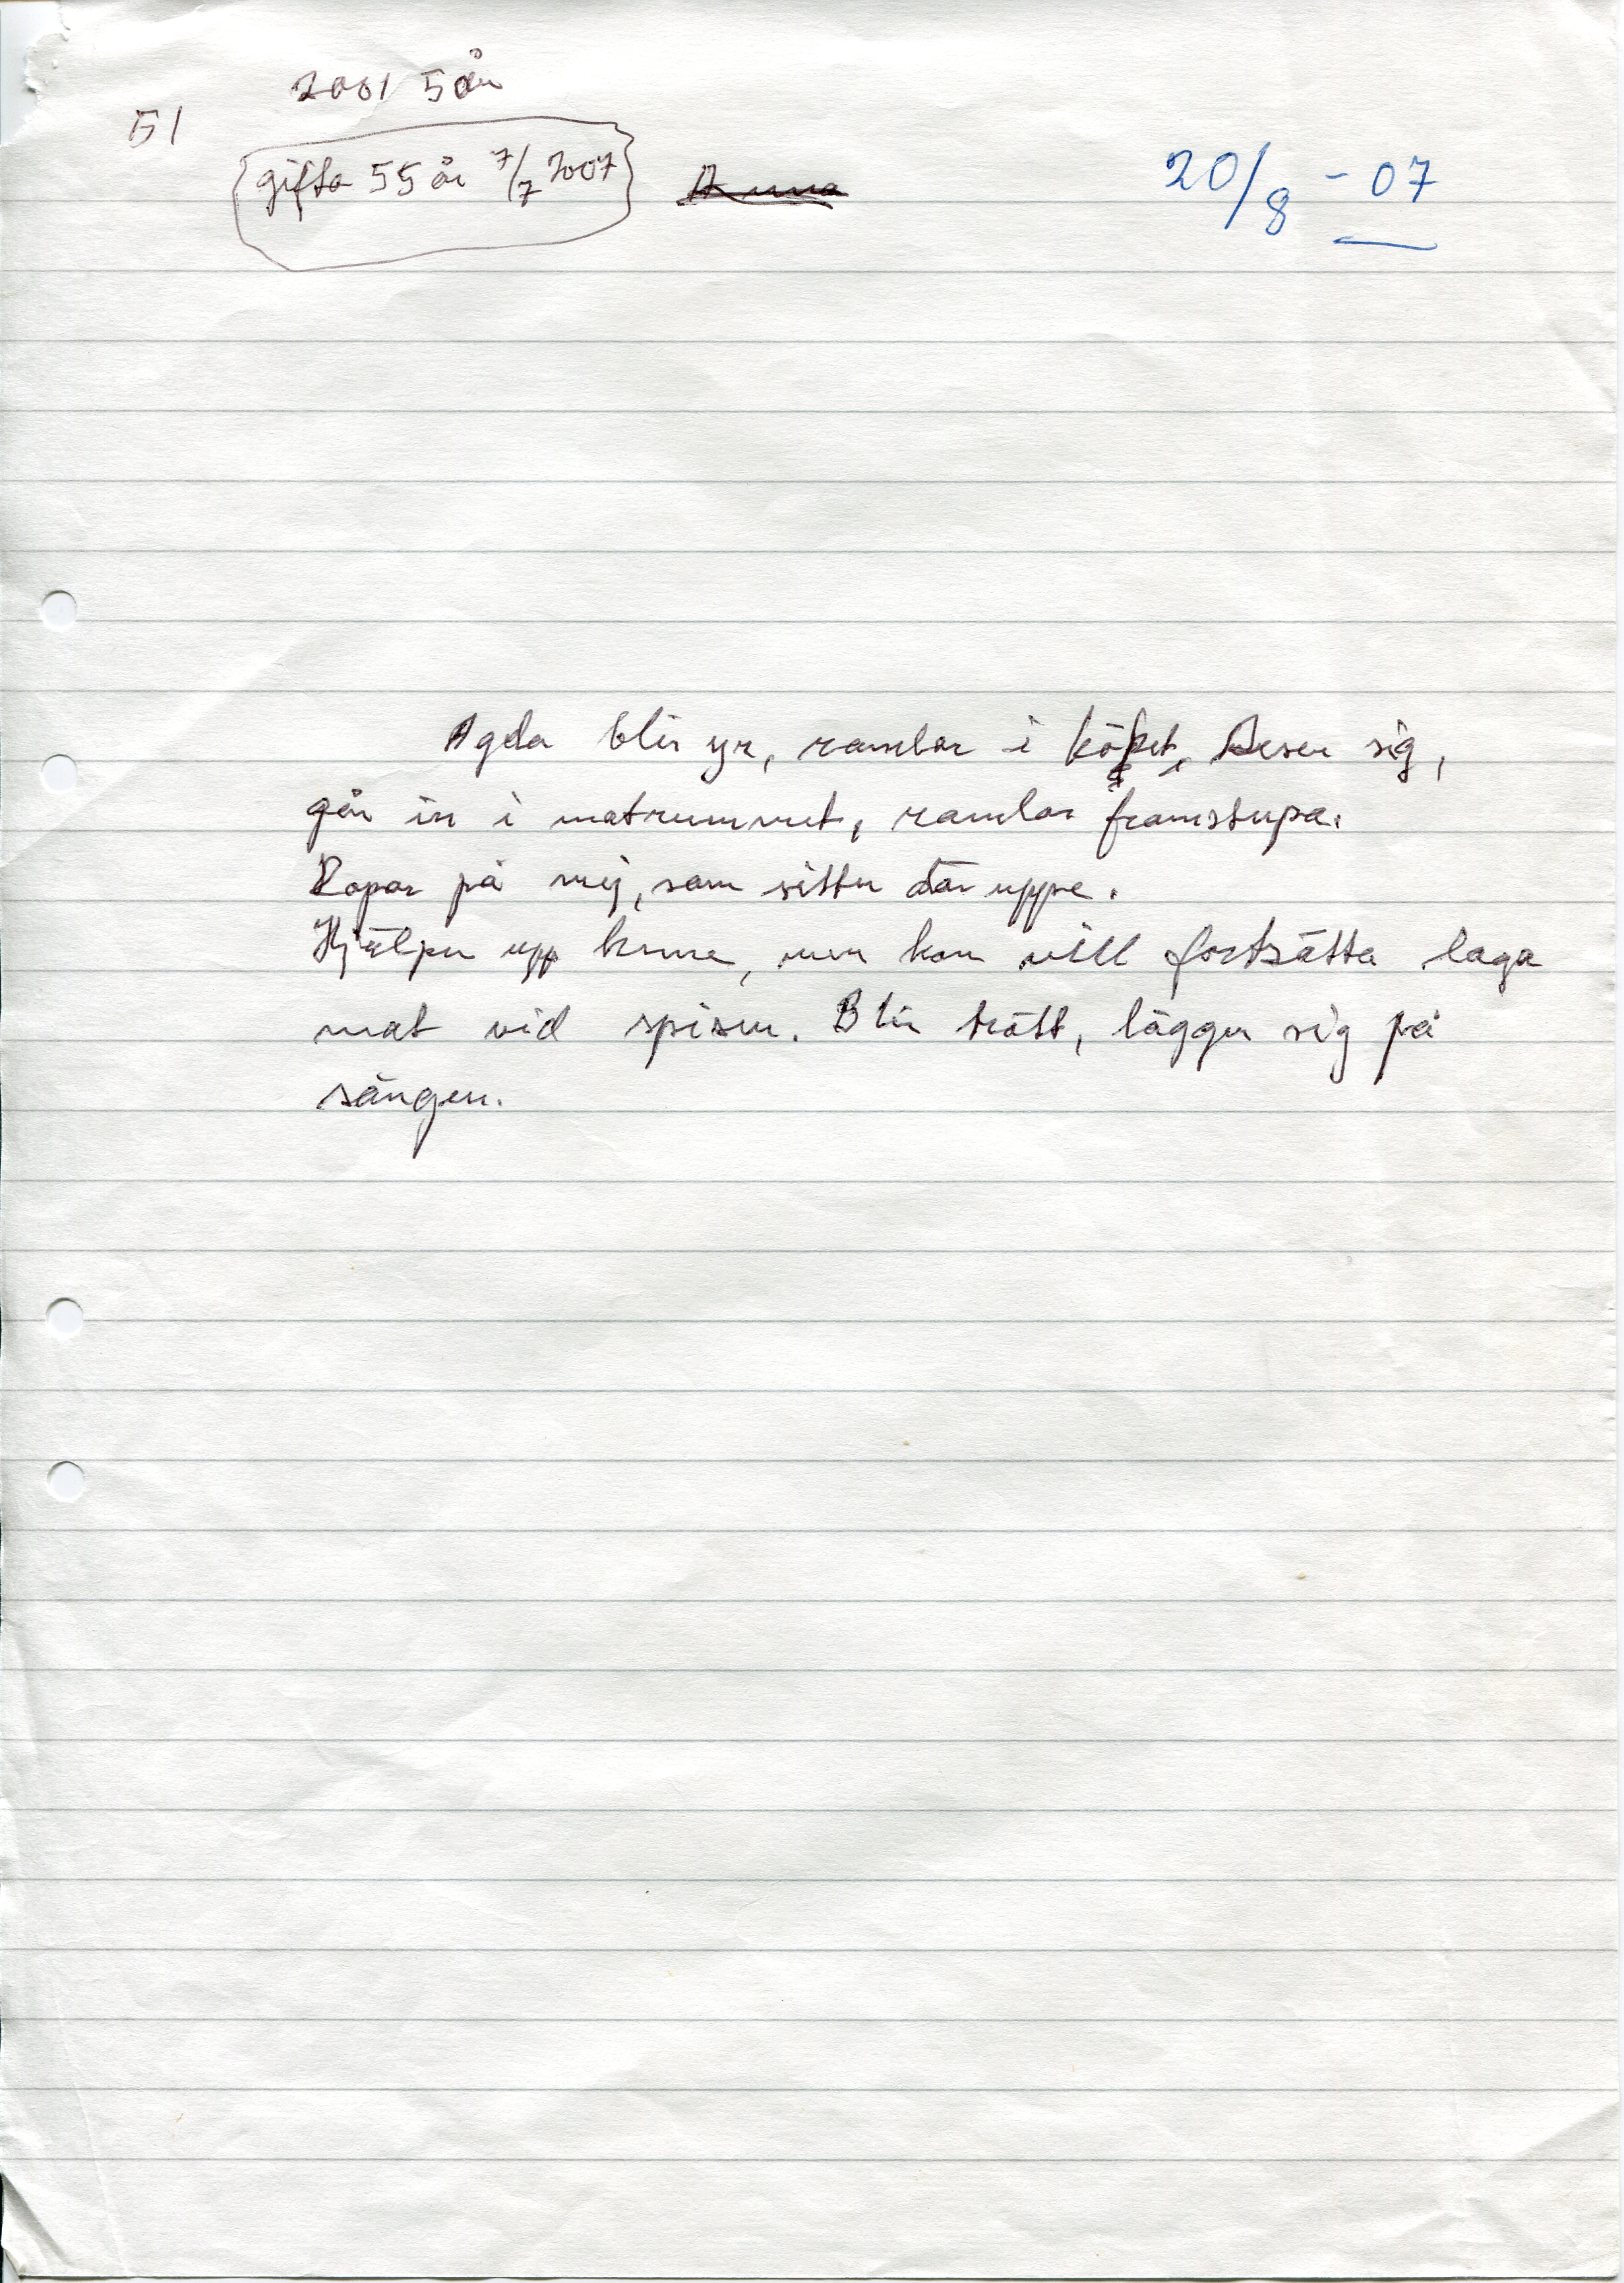 2001 5 år
51
gifta 55 år 7/7 2007
20/8 - 07
Agda blir yr, ramlar i köket, Reser sig,
går in i matrummet, ramlar framstupa.
Ropar på mig, som sitter där uppe.
Hjälper upp henne, men hon vill fortsätta laga
mat vid spisen. Blir trött, lägger sig på
sängen.